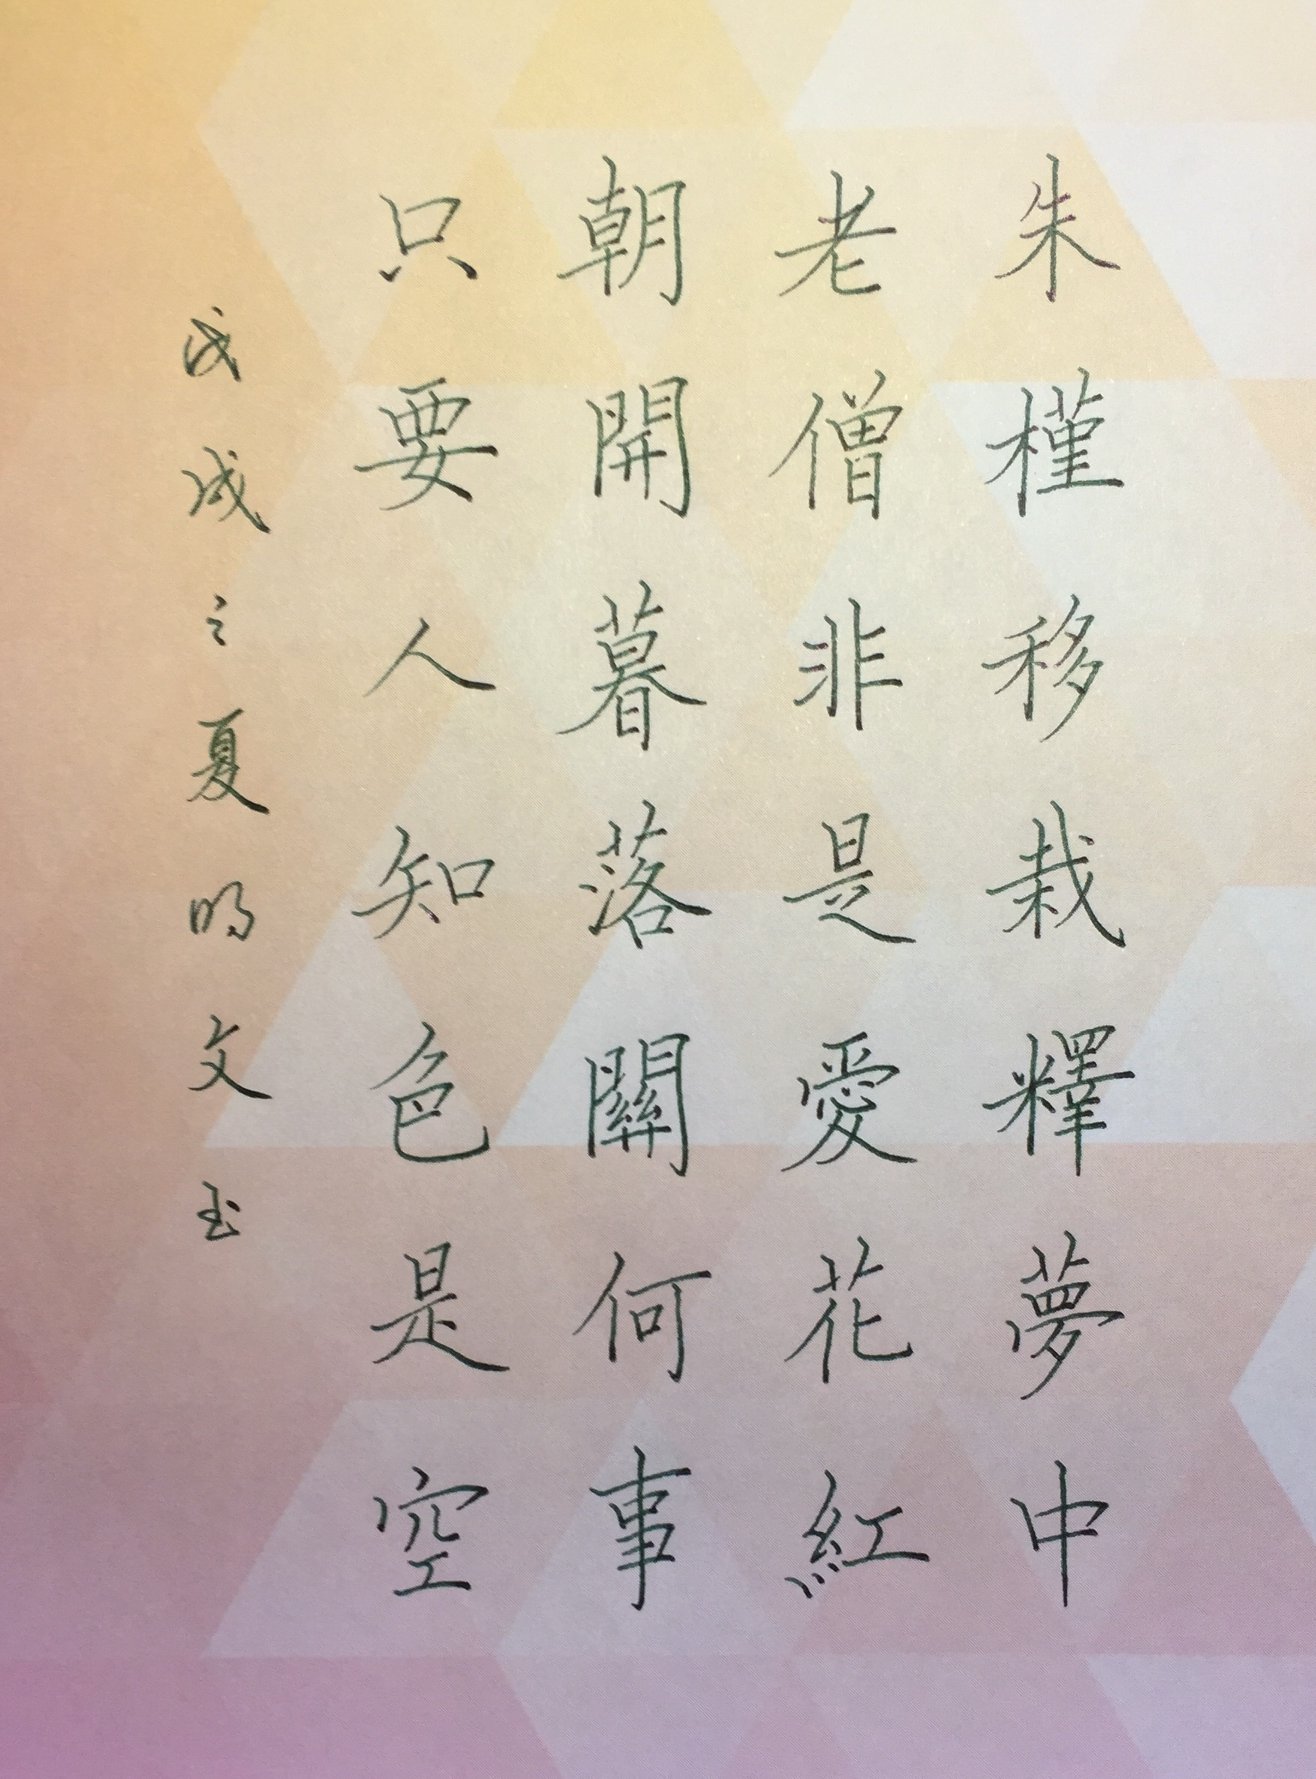 朱槿移栽釋夢中
老僧非是愛花紅
朝開暮落關何事
只要人知色是空
戊戌之夏明文书